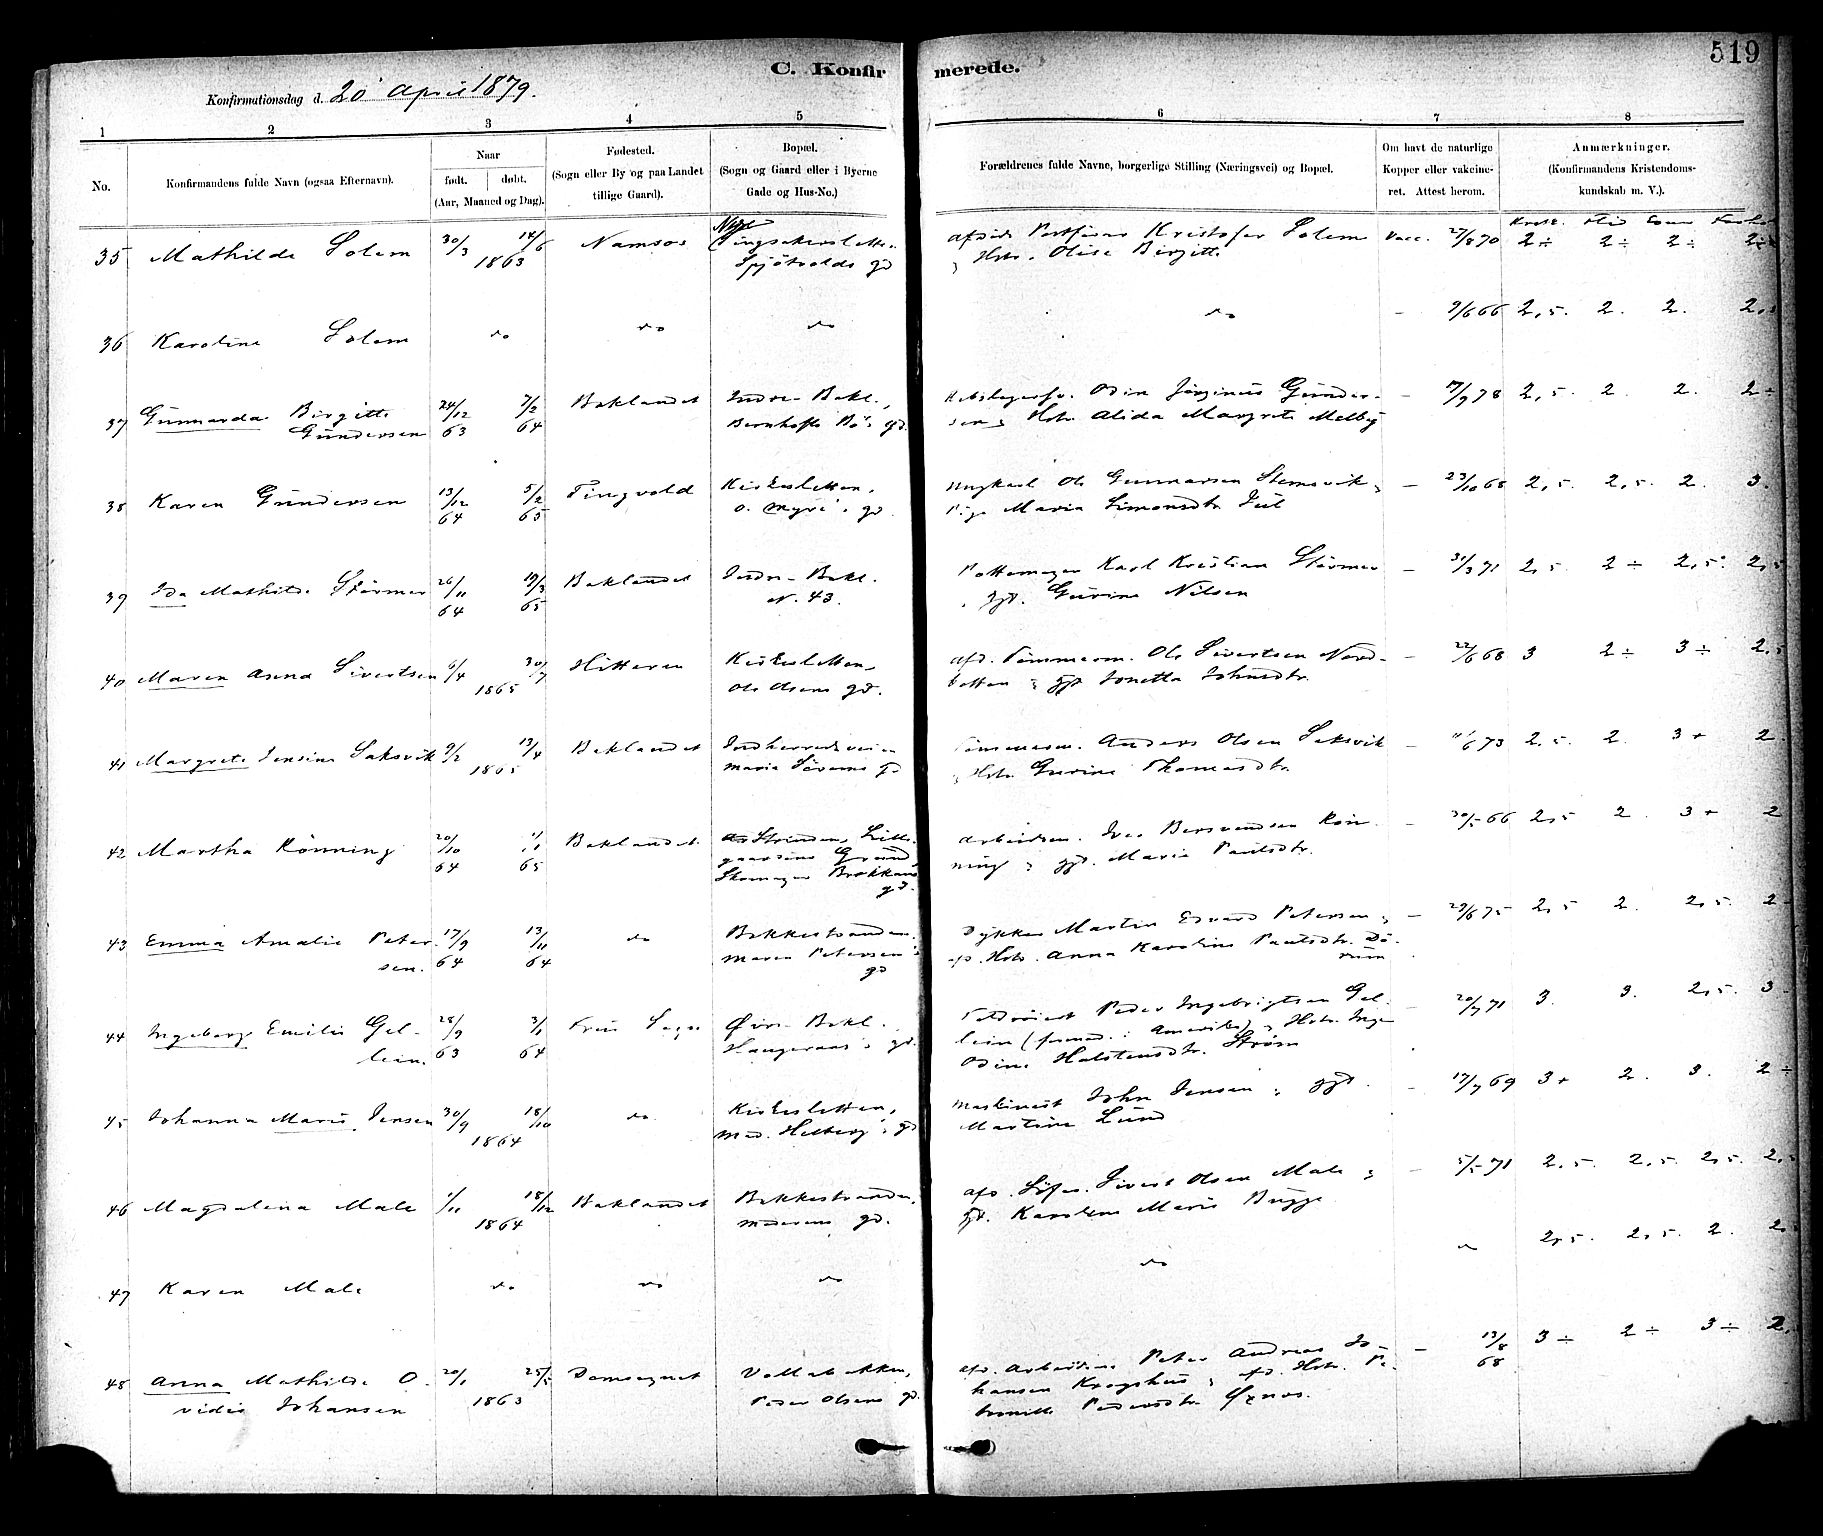 519
C. Konfirmerede.
Konfirmationsdag d. 20 April 1879.
1 2 3 4 5 6 7 8
No.
Konfirmandens fulde Navn (ogsaa Efternavn).
Naar
født. døbt.
(Aar, Maaned og Dag).
Fødested.
(Sogn eller By og paa Landet
tillige Gaard).
Bopæl.
(Sogn og Gaard eller i Byerne
Gade og Hus-No.)
Forældrenes fulde Navne, borgerlige Stilling (Næringsvei) og Bopæl.
Om havt de naturlige
Kopper eller vakcine-
ret. Attest herom.
Anmærkninger.
(Konfirmandens Kristendoms-
kundskab m. V.).
35 Mathilde Solem 30/3 14/6 1863 Namsos
Kristofer Solem
Hstr. Olise Birgitte
Vacc. 27/8 70 2÷ 2÷ 2÷ 2÷
36 Karoline Solem do do do do
- 9/6 66 2,5. 2. 2.
37 Gunnarda Birgitte
Gundersen
24/12 63 7/2 64 Baklandet Indre Bakl.,
Odin Jørginus Gunder-
sen & Hstr. Alida Margrete Melby
- 17/9 78 2,5. 2. 2. 2÷
38 Karen Gundersen 13/12 64 5/2 65 Tingvold Kirkesletten,
O. Myre's gd
Ole Gunnarsen Stemsvik &
Pige Maria Simonsdtr. Jul
- 23/10 68 2,5. 2,5. 2. 3.
39 Ida Mathilde Størmer 26/11 64 19/3 65 Baklandet Indre Bakl.
N. 43.
Pottemager Karl Kristian Størmer
& gift. Gurine Nilsen
- 31/3 71 2,5 2÷ 2,5. 2,5
40 Maren Asena Sivertsen 6/4 30/7 1865 Hitteren Kirkesletten,
Ole Olsens gd.
afd. Tømmerm. Ole Sivertsen Nord-
botten & gift Jonetta Johnsdtr.
- 22/6 68 3 2÷ 3÷ 2,5
41 Margrete Jensine Saksvik 9/2 13/4 1865 Baklandet Indherredsveien
Maria gd
Tømmerm. Anders Olsen Saksvik
& Hstr Gurine Thomasdtr.
- 11/6 73 2,5. 2. 3+ 2
42 Martha Rönning 20/10 64 1/1 65 Baklandet. Strinden,
Grund
Skomager
gd.
Arbeidsm. Iver Rön-
ning & gift. Marie Paulsdtr.
- 30/5 66 2,5 2. 3+ 2
43 Emma Amalie Peter-
sen.
17/9 64 13/11 64 do Bakkestranden.
Maren Petersen's
gd
Dykker Martin Edvard Petersen &
Hstr. Anna Karoline Paulsdtr.
- 29/6 75 2,5 2. 2,5. 2
44 Ingeborg Emilie Gel-
lein.
28/9 63 3/1 64 Frue Sogn Øvre Bakl.
Haugeraas's gd.
Peder Ingebrigtsen Gel-
lein (Amerika) & Hstr. Inge
Odine Halstensdtr. Strøm
- 20/7 71 3. 3. 2,5. 3
45 Johanna Marie Jensen 30/9 18/10 1864 do Kirkesletten,
Mad. Hetberg's gd
Maskinist John Jensen & gift.
Martine Lund
- 17/7 69 3+ 2. 3. 2÷
46 Magdalena Male 1/11 18/12 1864 Baklandet Bakkestranden,
Moderens gd.
afd. Sivert Olsen Male &
gft. Karoline Marie Bugge
- 5/5 71 2,5. 2,5. 2,5. 2,5
47 Karen Male do do do do do
2,5. 2,5. 2. 2,5
48 Anna Mathilde O-
vidie Johansen
20/1 25/5 1863 Domsognet Vollabakken,
Peder Olsens gd.
afd. Arbeidsm. Peter Andreas Jo-
hansen Krogshus & afd. Hstr. Pe-
tronille Pedersdtr Øxnes.
- 13/8 68 3÷ 2÷ 3÷ 2.